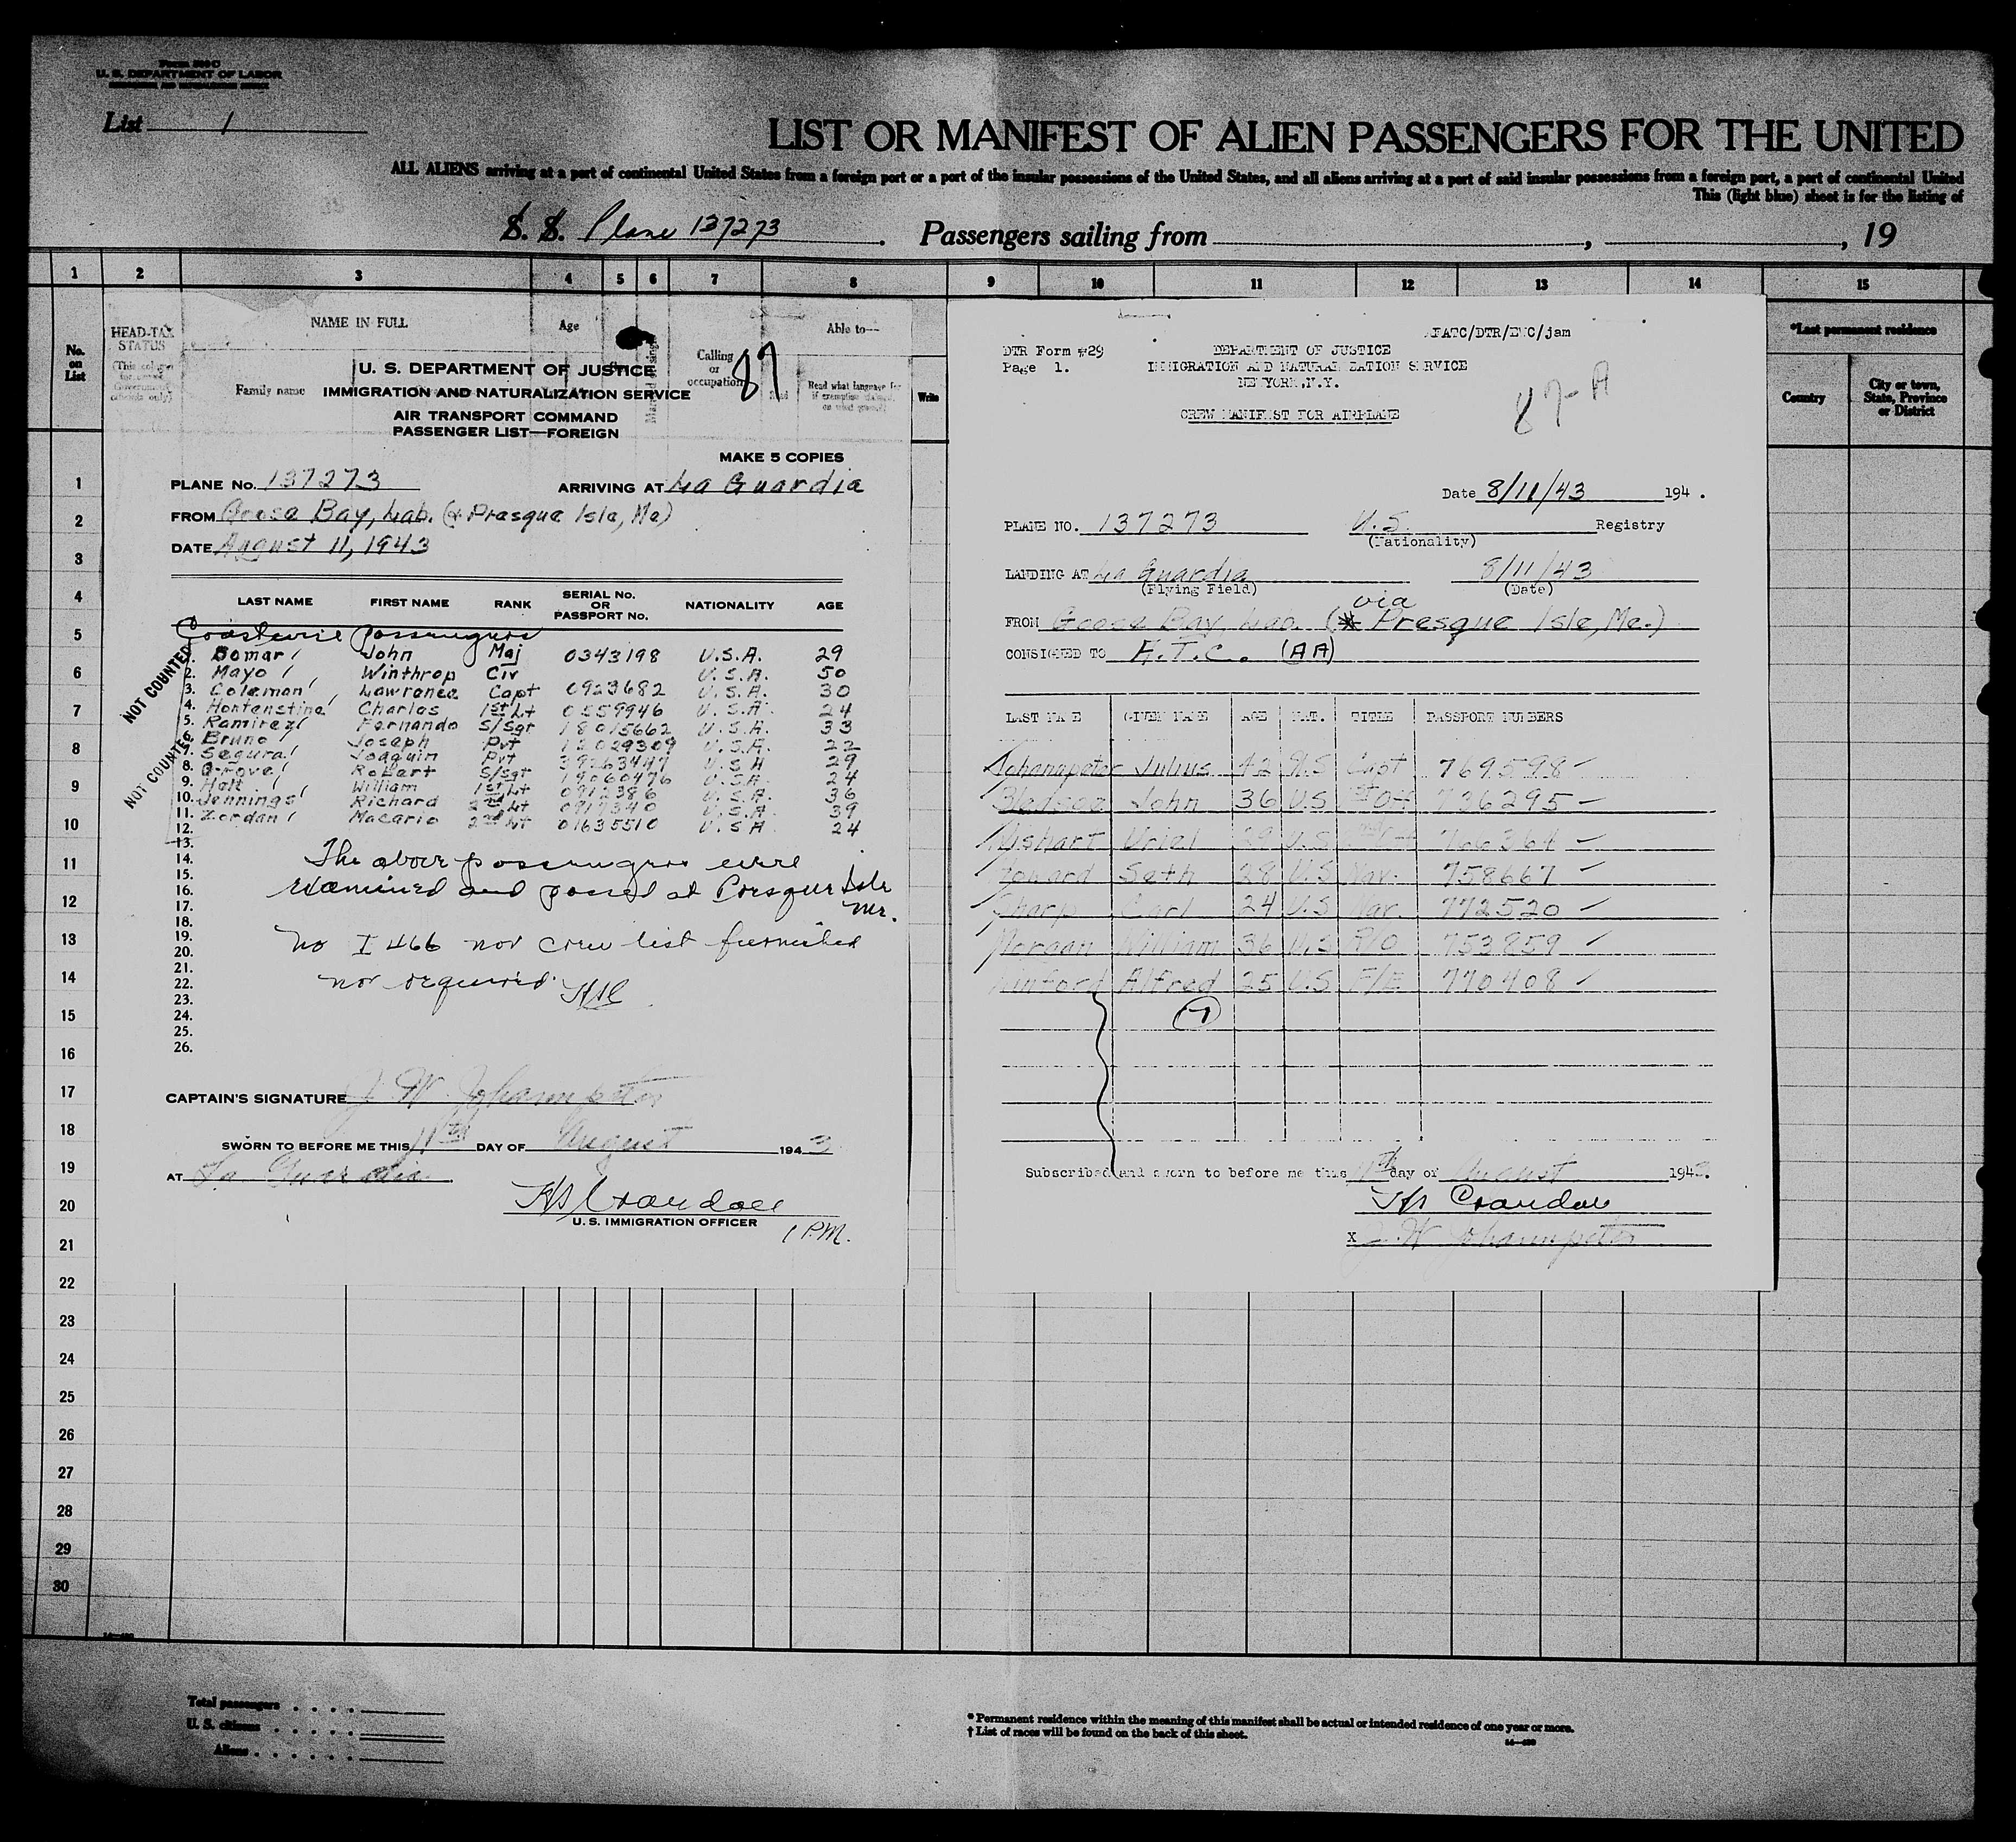 Form 500 C
U. S. DEPARTMENT OF LABOR
IMMIGRATION AND NATURALIZATION SERVICE
List 1
LIST OR MANIFEST OF ALIEN PASSENGERS FOR THE UNITED
ALL ALIENS arriving at a port of continental United States from a foreign port or a port of the insular possessions of the United States, and all aliens arriving at a port of said insular possessions from a foreign port, a port of continental United
This (light blue) sheet is for the listing of
S. S. Plane 137273. Passengers sailing from , , 19
1 2 3 4 5 6 7 8 9 10 11 12 13 14 15
No. on List
HEAD-TAX STATUS
(This column for use of Government officials only)
NAME IN FULL
Family name
Age
Calling or occupation
Able to—
Read what language
Write
*Last permanent residence
Country
City or town, State, Province or District
87
U. S. DEPARTMENT OF JUSTICE
IMMIGRATION AND NATURALIZATION SERVICE
AIR TRANSPORT COMMAND
PASSENGER LIST—FOREIGN
MAKE 5 COPIES
PLANE No. 137273 ARRIVING AT La Guardia
FROM Goose Bay, Lab. (& Presque Isle, Me)
DATE August 11, 1943
LAST NAME FIRST NAME RANK SERIAL No. OR PASSPORT No. NATIONALITY AGE
Coastwise Passengers
NOT COUNTED
NOT COUNTED
1. Bomar John Maj 0343198 U.S.A. 29
2. Mayo Winthrop Civ U.S.A. 50
3. Coleman Lawrence Capt 0923682 U.S.A. 30
4. Hontenstine Charles 1st Lt 0559946 U.S.A. 24
5. Ramirez Fernando S/Sgt 18015662 U.S.A. 33
6. Bruno Joseph Pvt 12029309 U.S.A. 22
7. Segura Joaquin Pvt 39263447 U.S.A 29
8. Grove Robert S/Sgt 19060476 U.S.A. 24
9. Holt William 1st Lt 0912386 U.S.A. 36
10. Jennings Richard 2nd Lt 0917340 U.S.A. 39
11. Zordan Macario 2nd Lt 01635510 U.S.A. 24
12.
13.
14.
15.
16.
17.
18.
19.
20.
21.
22.
23.
24.
25.
26.
The above passengers were
examined and passed at Presque Isle
Me.
No I 466 nor crew list furnished
nor required. HSC
CAPTAIN'S SIGNATURE J. W. Johannpeter
SWORN TO BEFORE ME THIS 11th DAY OF August 1943
AT La Guardia
HS Crandall
U. S. IMMIGRATION OFFICER
1 P.M.
FATC/DTR/EMC/jam
DTR Form #29
Page 1.
DEPARTMENT OF JUSTICE
IMMIGRATION AND NATURALIZATION SERVICE
NEW YORK, N.Y.
87-A
CREW MANIFEST FOR AIRPLANE
Date 8/11/43 194 .
PLANE NO. 137273 U.S. Registry
(Nationality)
LANDING AT La Guardia 8/11/43
(Flying Field) (Date)
via
FROM Goose Bay, Lab. (Presque Isle, Me.)
CONSIGNED TO F.T.C. (AA)
LAST NAME GIVEN NAME AGE NAT. TITLE PASSPORT NUMBERS
Johannpeter Julius 42 U.S Capt 769598
Bledsoe John 36 U.S 1st Off 736295
Wishart Uriel 29 U.S 766364
Howard Seth 28 U.S Nav. 758667
Sharp Carl 24 U.S Nar. 772520
Morgan William 36 U.S R/O 753859
Winford Alfred 25 U.S F/E 770408
7
Subscribed and sworn to before me this 11th day of August 1943.
HS Crandall
X J. W. Johannpeter
1
2
3
4
5
6
7
8
9
10
11
12
13
14
15
16
17
18
19
20
21
22
23
24
25
26
27
28
29
30
Total passengers
U. S. citizens
Aliens
* Permanent residence within the meaning of this manifest shall be actual or intended residence of one year or more.
† List of races will be found on the back of this sheet.